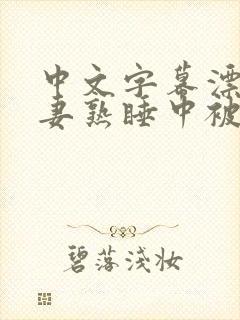 中文字幕漂
妻熟睡中被
碧落浅妆